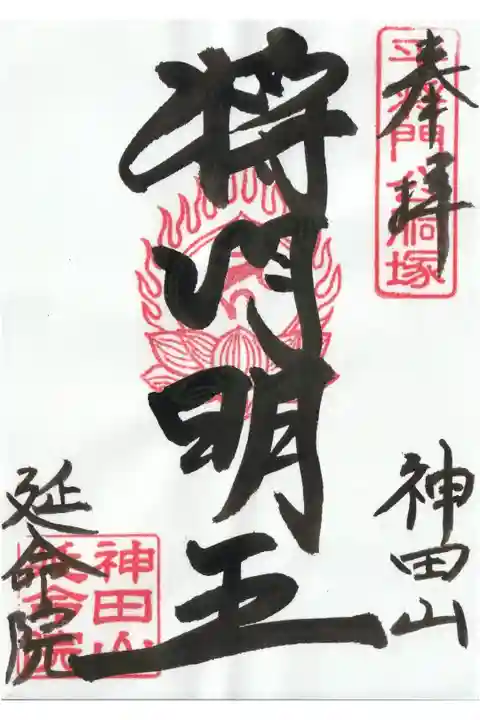 奉拝
平将門 胴塚
神田山
将门明王
延命院
神田山
延命院